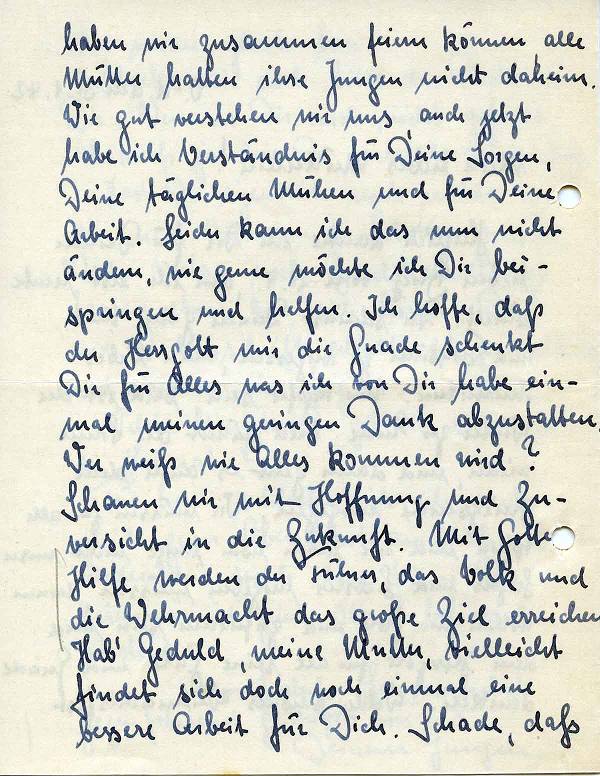 haben wir zusammen feiern können alle
Mütter hatten ihre Jungen nicht daheim.
Wie gut verstehen wir uns, auch jetzt
habe ich Verständnis für Deine Sorgen,
Deine täglichen Mühen und für Deine
Arbeit. Leider kann ich das nun nicht
ändern, wie gerne möchte ich Dir bei-
springen und helfen. Ich hoffe, daß
der Herrgott mir die Gnade schenkt
Dir für Alles was ich von Dir habe ein-
mal meinen geringen Dank abzustatten,
Wer weiß wie Alles kommen wird?
Schauen wir mit Hoffnung und Zu-
versicht in die Zukunft. Mit Gottes
Hilfe werden der Führer, das Volk und
die Wehrmacht das große Ziel erreichen
Hab' Geduld, meine Mutter, vielleicht
findet sich doch noch einmal eine
bessere Arbeit für Dich. Schade, daß